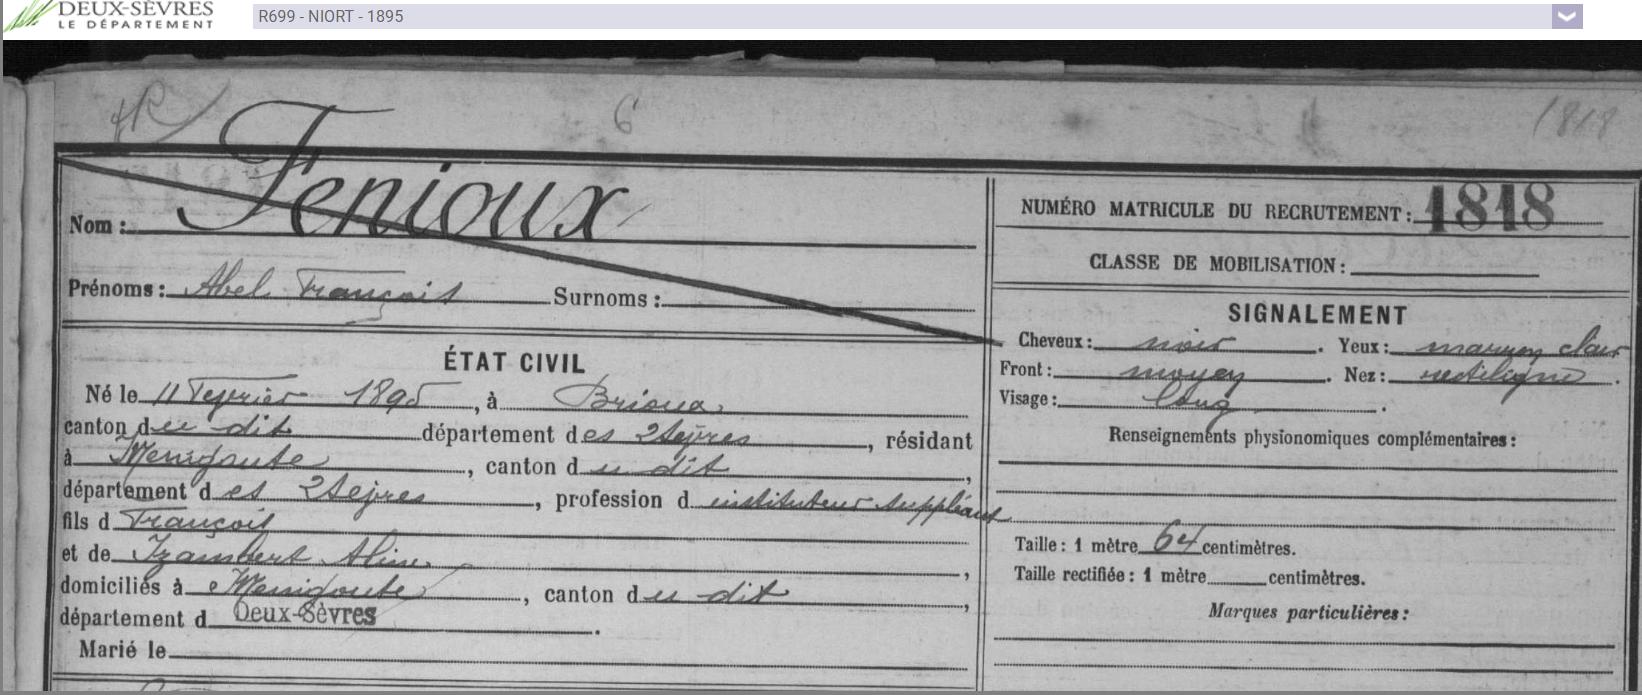 DEUX-SÈVRES
LE DÉPARTEMENT
R699 - NIORT - 1895
6
1818
Nom : Fenioux
Prénoms : Abel François Surnoms :
NUMÉRO MATRICULE DU RECRUTEMENT : 1818
CLASSE DE MOBILISATION :
SIGNALEMENT
Cheveux : noir . Yeux : marron clair
Front : moyen . Nez : rectiligne .
Visage : long .
Renseignements physionomiques complémentaires :
Taille : 1 mètre 64 centimètres.
Taille rectifiée : 1 mètre centimètres.
Marques particulières :
ÉTAT CIVIL
Né le 11 Fevrier 1895 , à Brioux
canton du dit département des 2 Sèvres , résidant
à Menigoute , canton du dit ,
département des 2 Sèvres , profession d instituteur suppléant
fils d François
et de Izambert Aline ,
domiciliés à Menigoute , canton du dit ,
département d Deux-Sèvres .
Marié le